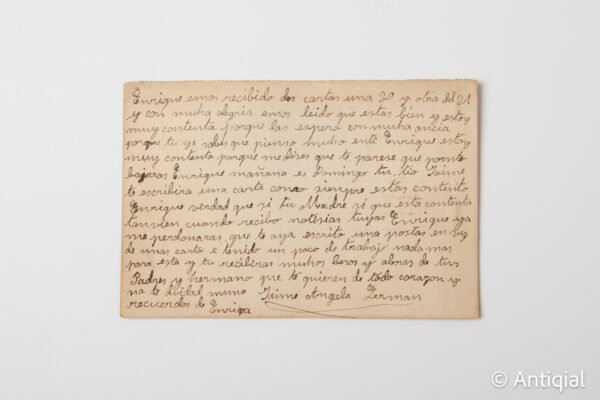 Enrique emos recibido dos cartas una 20 y otra del 21
y con muha alegria emos leido que estas bien y estoy
muy contenta porque las espero con muha ancia
porque tu ya sabes que pienso muho ente Enrique estoy
muy contenta porque medises que te parese que pronto
bajaras Enrique mañana es Domingo tu tio Jaime
te escribira una carta como siempre estas contento
Enrique verdad que si tu Madre si que esta contenta
tanvien cuando recibo notisias tuyas Enrique ya
me perdonaras que te aya escrito una postas en vez
de una carta e tenido un poco de trabajo nadamas
para esta y tu recibiras muhos besos y abrasos de tus
Padres y ermano que te quieren de todo corazon y
no te olvidad
Jaime Angela German
recuerdos de
© Antiqial